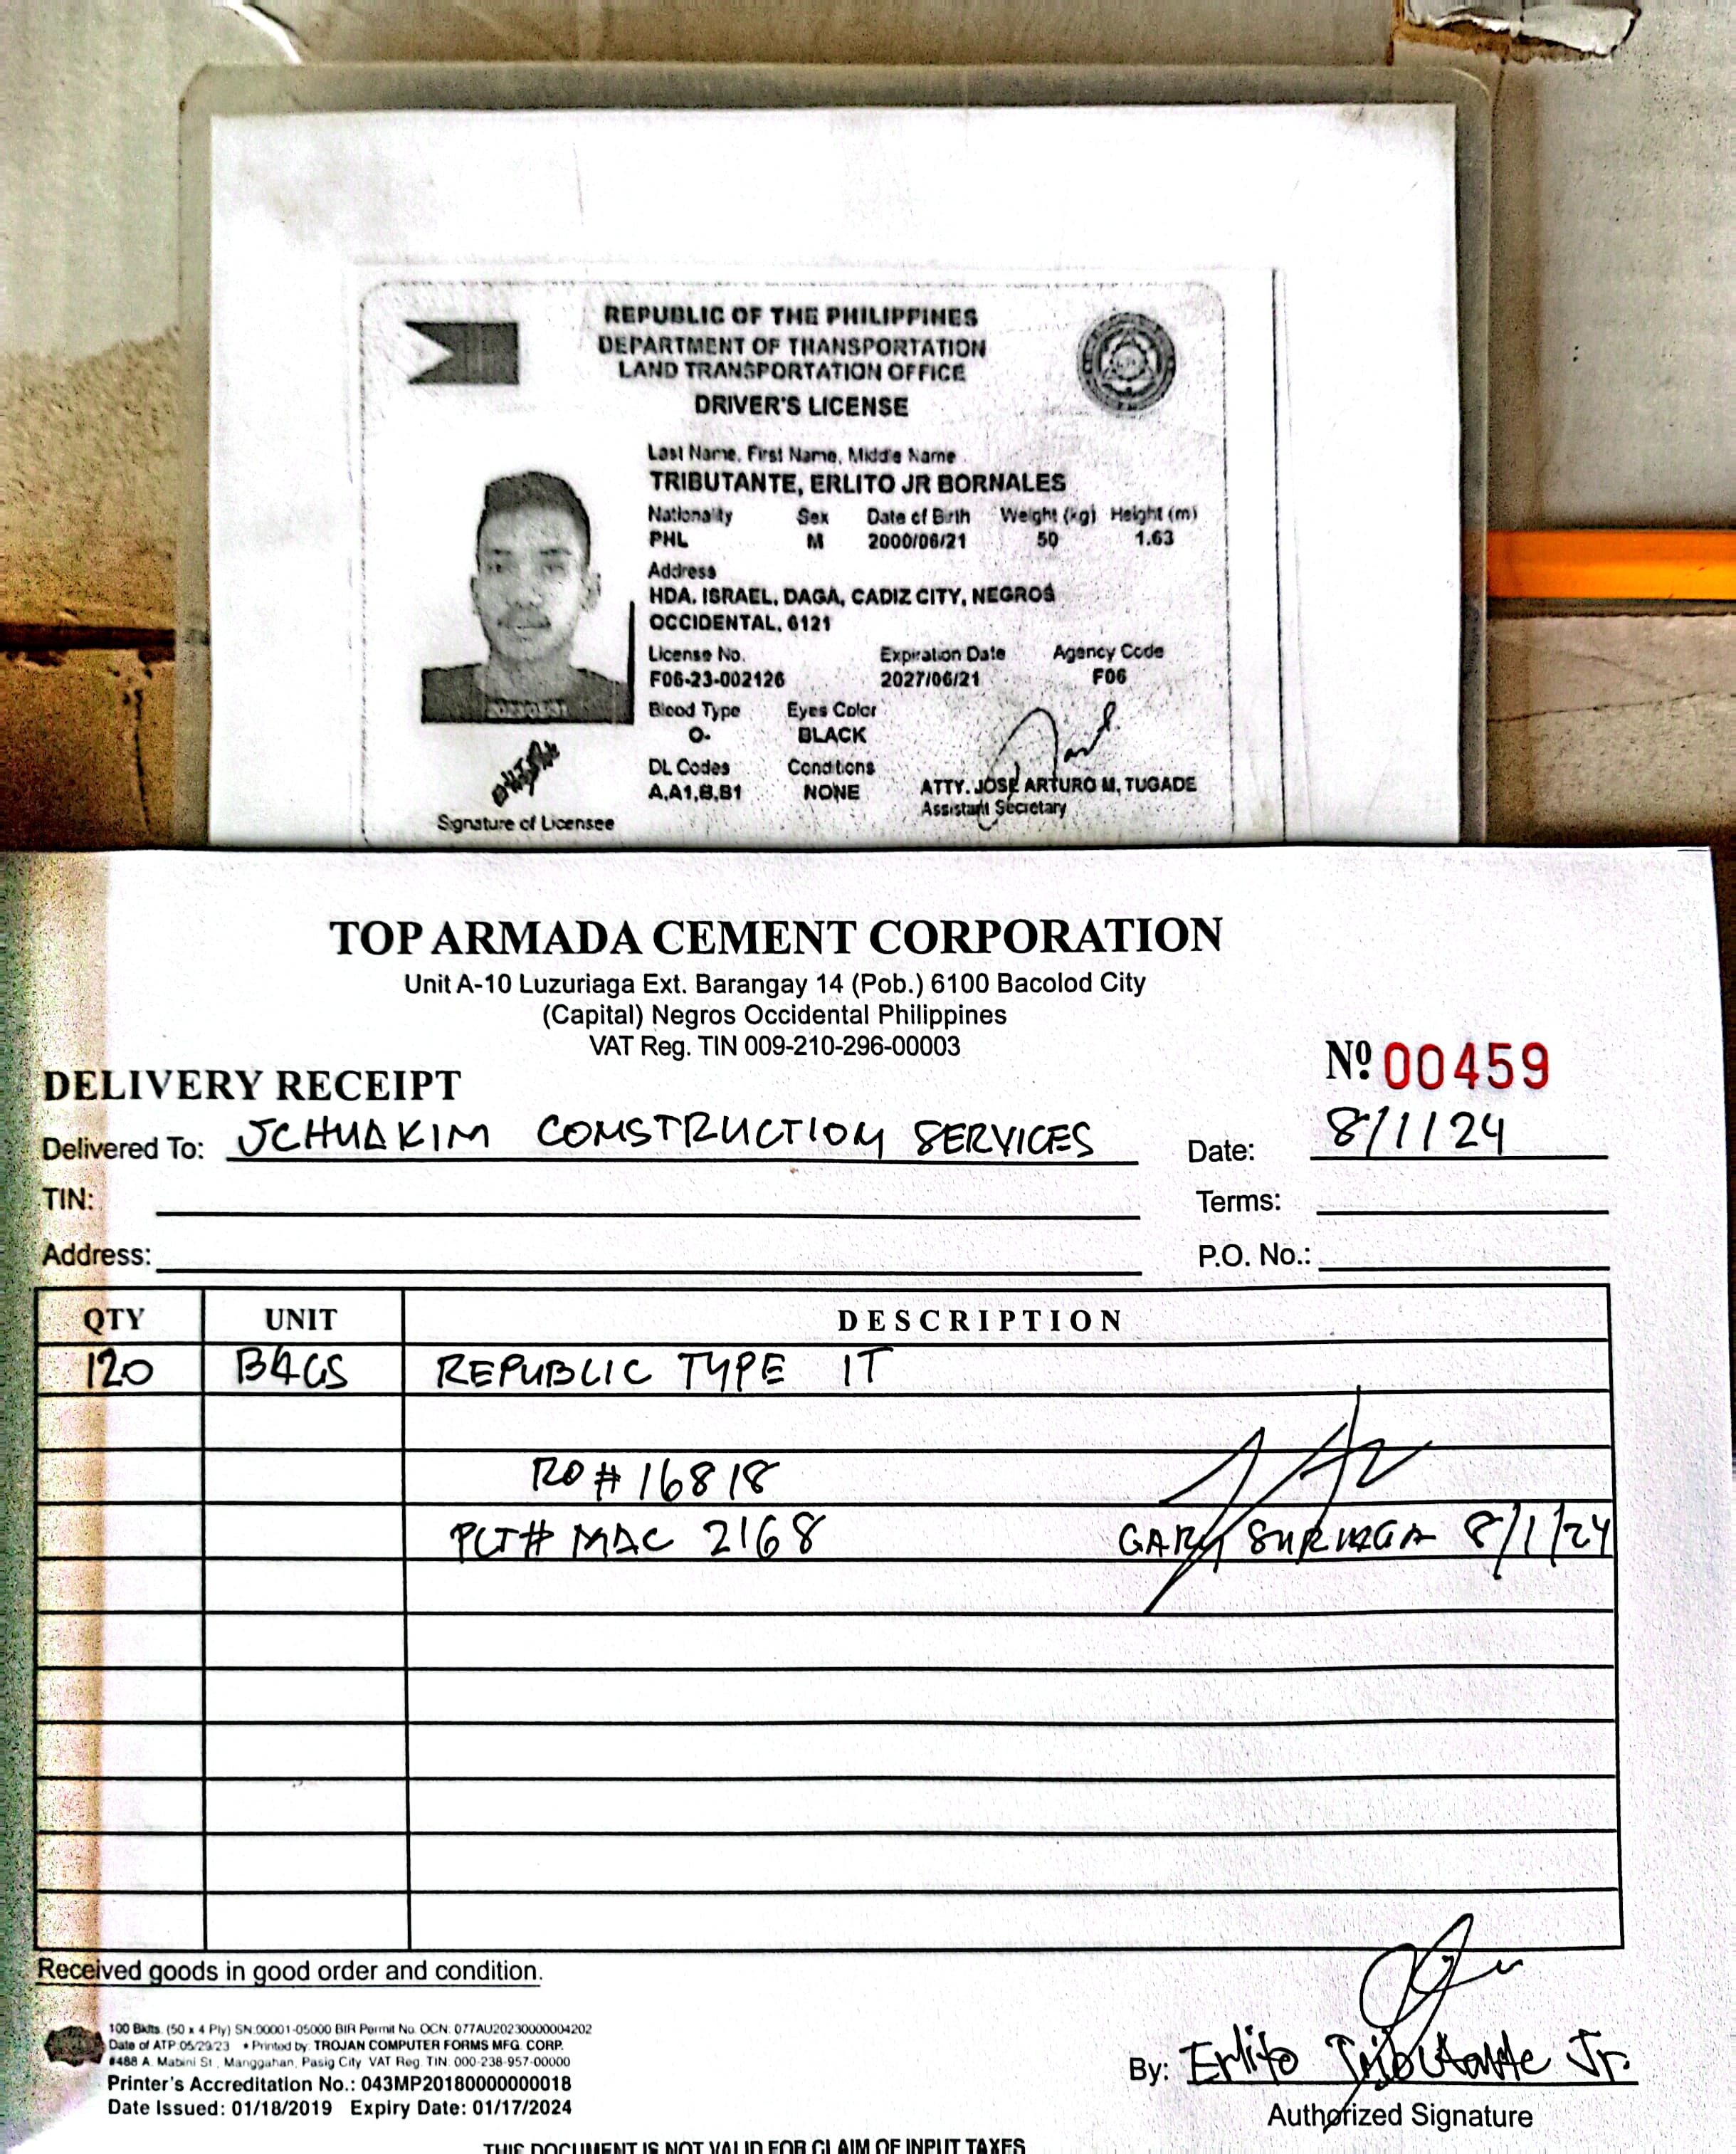 REPUBLIC OF THE PHILIPPINES
DEPARTMENT OF TRANSPORTATION
LAND TRANSPORTATION OFFICE
DRIVER'S LICENSE
Last Name, First Name, Middle Name
TRIBUTANTE, ERLITO JR BORNALES
Nationality Sex Date of Birth Weight (kg) Height (m)
PHL M 2000/06/21 50 1.63
Address
HDA. ISRAEL, DAGA, CADIZ CITY, NEGROS
OCCIDENTAL, 6121
License No. Expiration Date Agency Code
F06-23-002126 2027/06/21 F06
Blood Type Eyes Color
O- BLACK
DL Codes Conditions
A,A1,B,B1 NONE
ATTY. JOSE ARTURO M. TUGADE
Assistant Secretary
Signature of Licensee
TOP ARMADA CEMENT CORPORATION
Unit A-10 Luzuriaga Ext. Barangay 14 (Pob.) 6100 Bacolod City
(Capital) Negros Occidental Philippines
VAT Reg. TIN 009-210-296-00003
Nº 00459
DELIVERY RECEIPT
Delivered To: JCHUAKIM CONSTRUCTION SERVICES Date: 8/1/24
TIN: Terms:
Address: P.O. No.:
QTY UNIT DESCRIPTION
120 BAGS REPUBLIC TYPE 1T
RO # 16818
PLT# MAC 2168 GARY 8/1/24
Received goods in good order and condition.
100 Bklts. (50 x 4 Ply) SN:00001-05000 BIR Permit No. OCN: 077AU20230000004202
Date of ATP 05/29/23 • Printed by: TROJAN COMPUTER FORMS MFG. CORP.
#488 A. Mabini St., Manggahan, Pasig City VAT Reg. TIN: 000-238-957-00000
Printer's Accreditation No.: 043MP20180000000018
Date Issued: 01/18/2019 Expiry Date: 01/17/2024
By: Erlito Tributante Jr.
Authorized Signature
THIS DOCUMENT IS NOT VALID FOR CLAIM OF INPUT TAXES